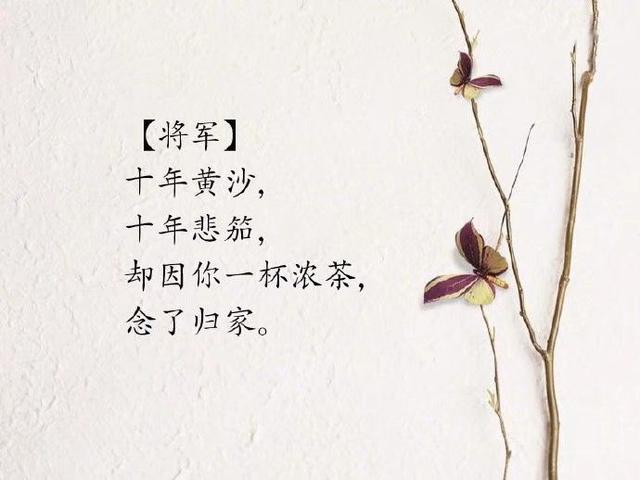 【将军】
十年黄沙，
十年悲笳，
却因你一杯浓茶，
念了归家。